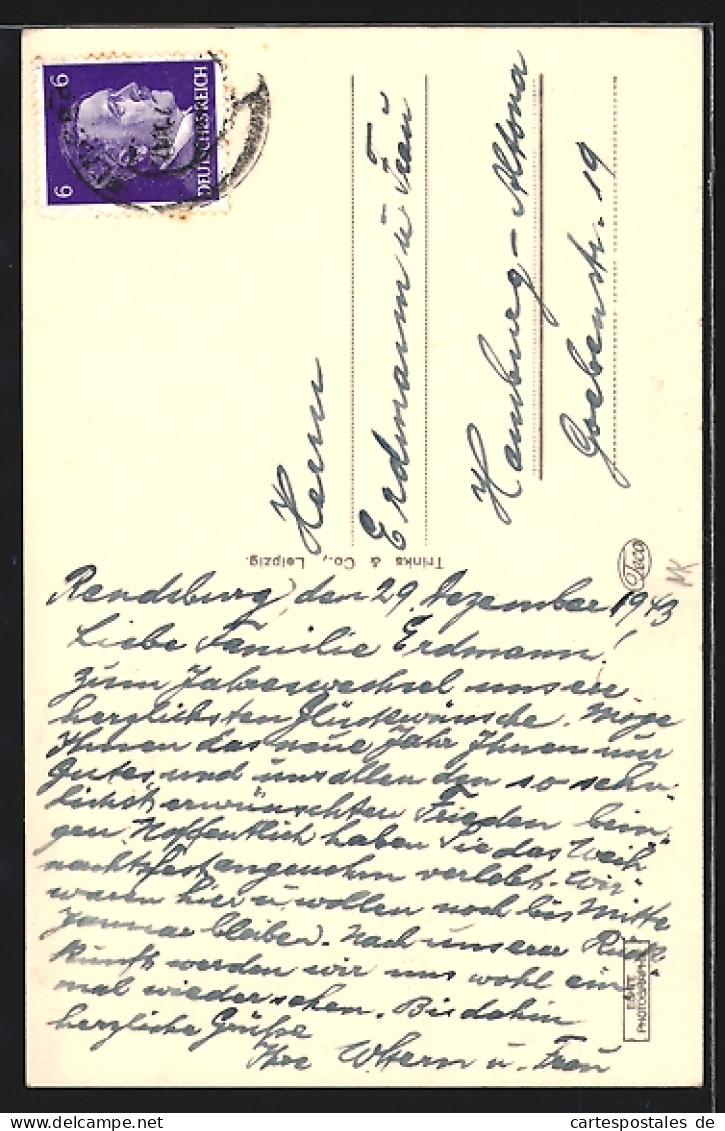 6 6
DEUTSCHES REICH
Herrn
Erdmann u Frau
Hamburg-Altona
Goebenstr. 19
Trinks & Co., Leipzig.
Teco
Rendsburg, den 29. Dezember 1943
Liebe Familie Erdmann!
Zum Jahreswechsel unsere
herzlichsten Glückwünsche. Möge
Ihnen das neue Jahr Ihnen nur
Gutes und uns allen den so sehn-
lichst erwünschten Frieden brin-
gen. Hoffentlich haben Sie das Weih
nachtsfest angenehm verlebt. Wir
waren hier u. wollen noch bis Mitte
Januar bleiben. Nach unserer Rück
kunft werden wir uns wohl ein
mal wiedersehen. Bis dahin
herzliche Grüße
Ihre u. Frau
ECHTE
PHOTOGRAPHIE
www.delcampe.net
cartespostales de